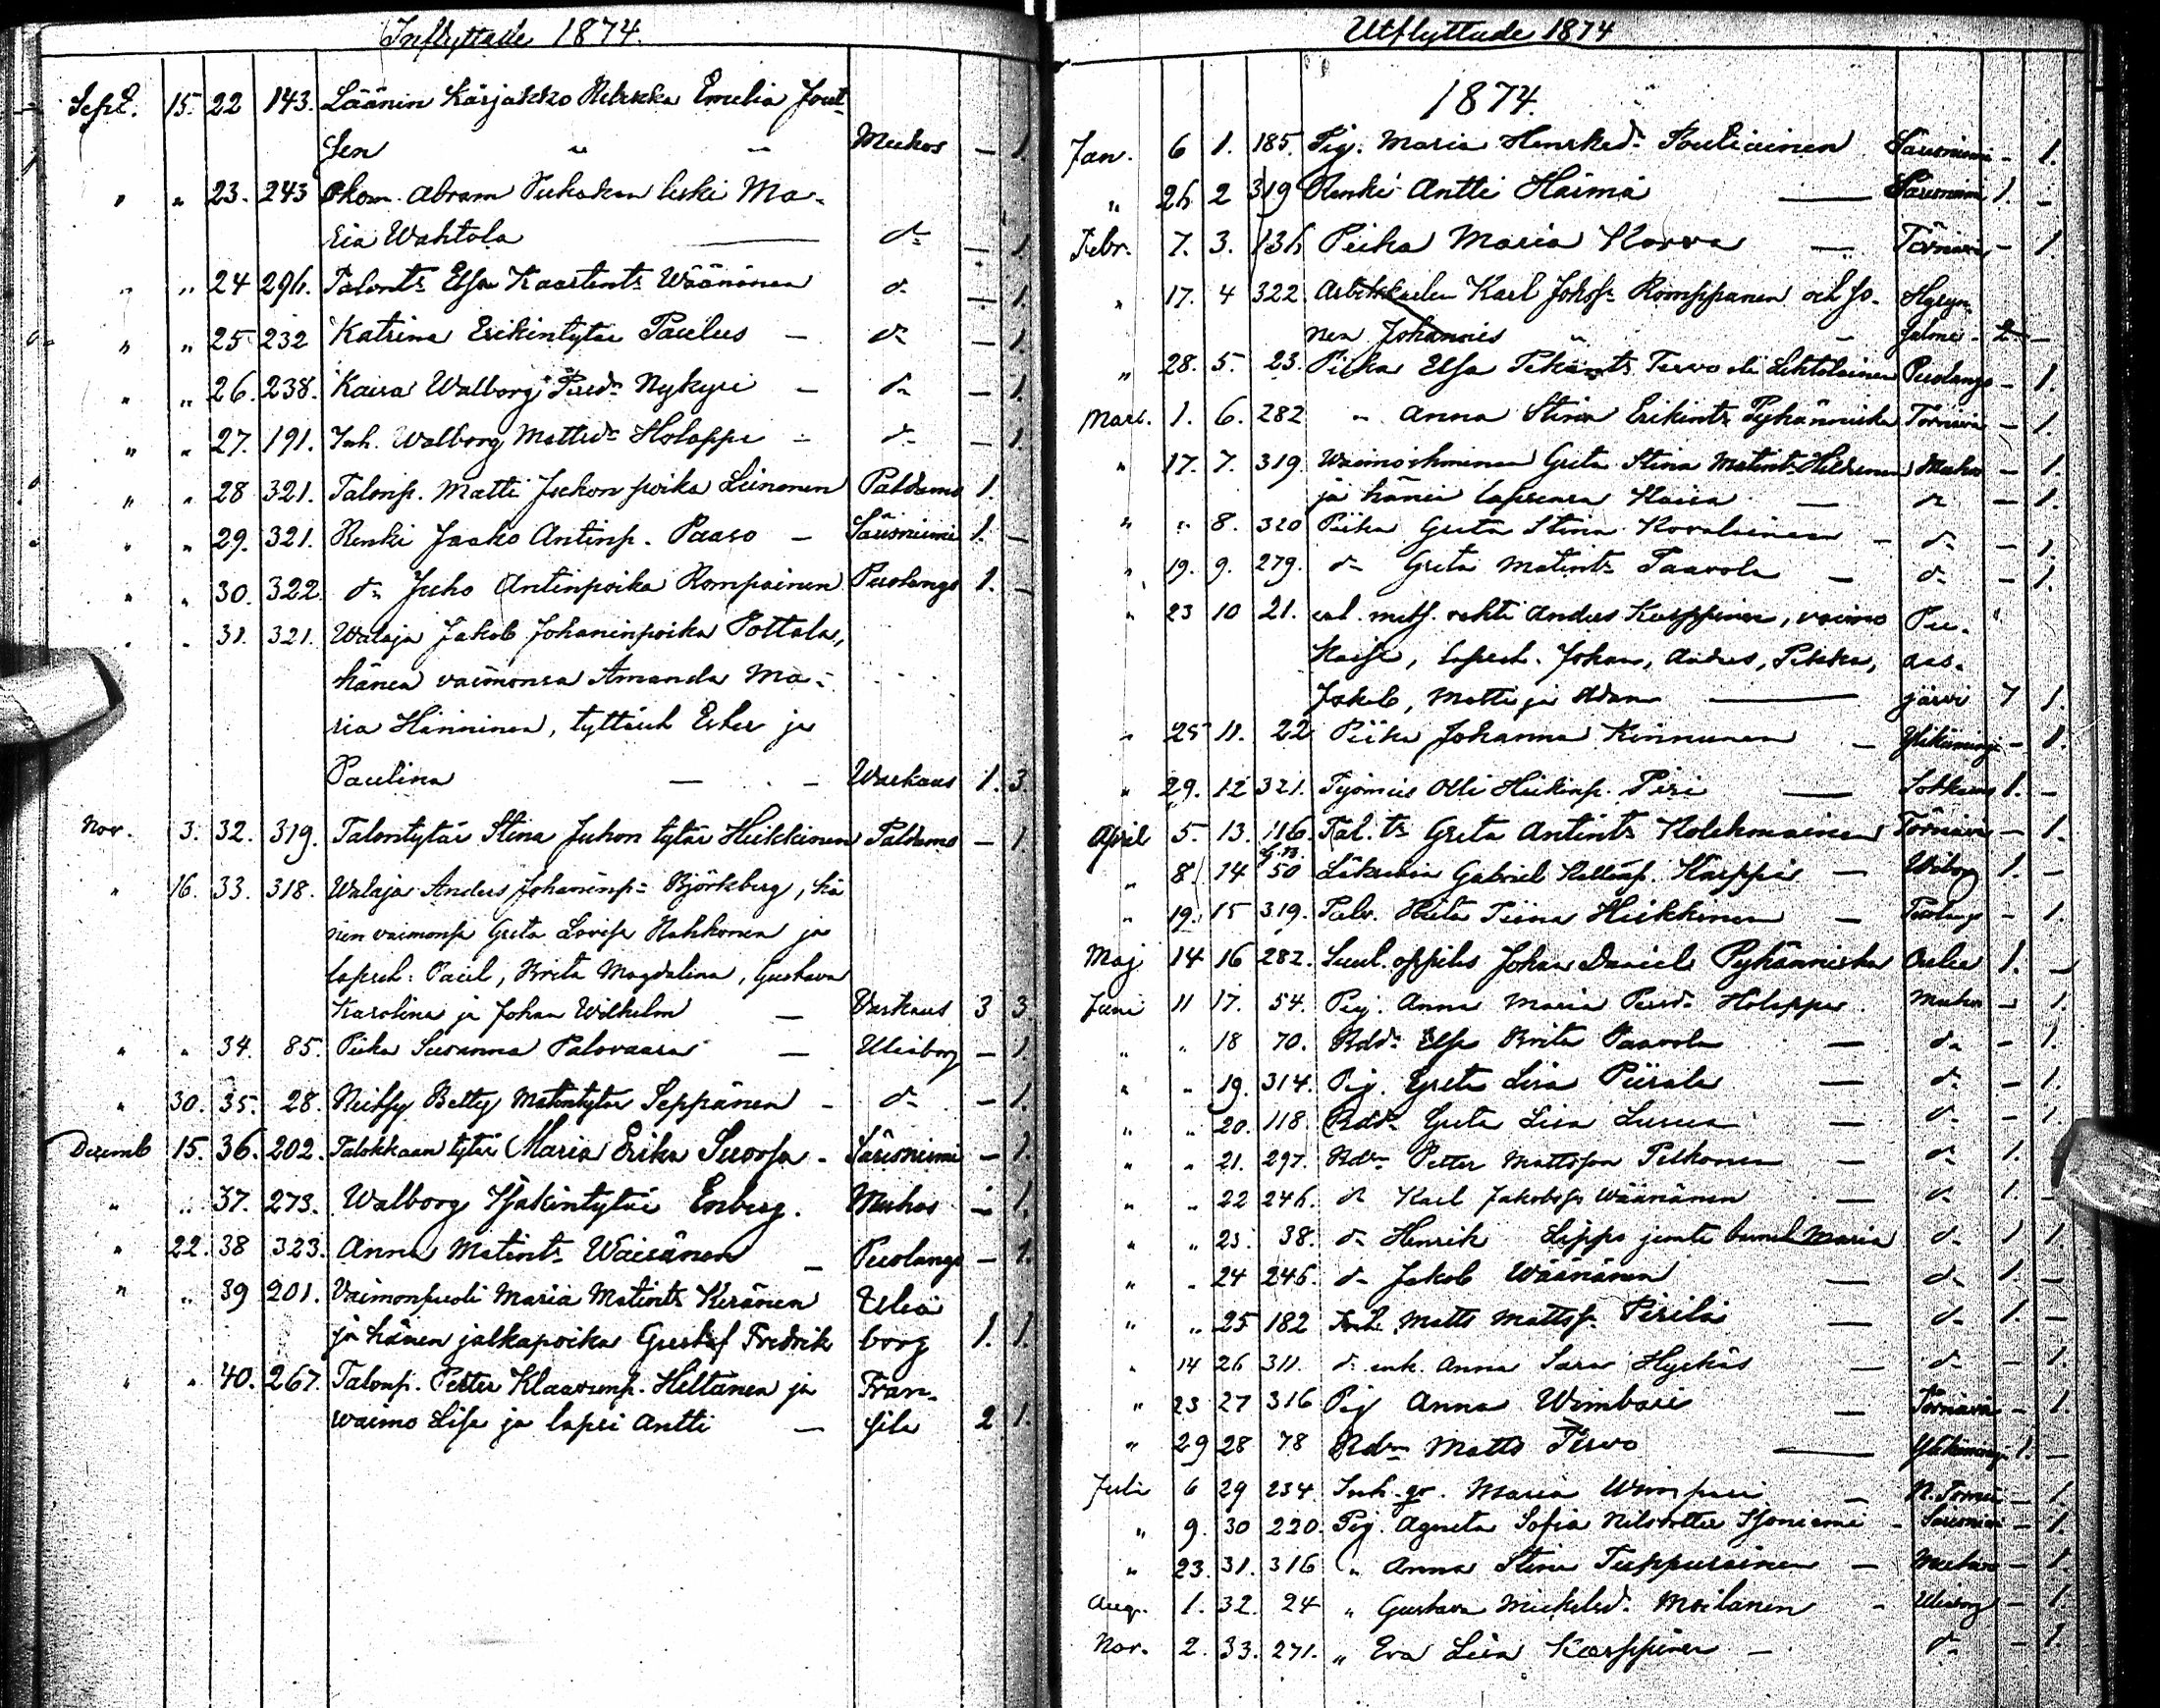 Inflyttade 1874.
Sept. 15. 22 143. Läänin Karjakko Rebekka Emelia Jout-
sen " " Muhos — 1.
" " 23. 243 Abram leski Ma-
ria Wahtola — d:o — 1.
" " 24 296. Talont:r Elsa Kaarlent:r Väänänen d:o — 1.
" " 25 232 Katrina Erikintytär Paulus — d:o — 1.
" " 26. 238. Kaisa Walborg Persd:r Nykyri — d:o — 1.
" " 27. 191. Inh. Walborg Mattsd:r Holappa — d:o — 1.
" " 28 321. Talonp. Matti Juhon poika Leinonen Paldamo 1.
" " 29. 321. Renki Jaako Antinp. Paaso — Säräisniemi 1. —
" " 30. 322. d:o Juho Antinpoika Rompainen Puolango 1. —
" " 31. 321. Walaja Jakob Johaninpoika Pottala,
hänen vaimonsa Amanda Ma-
ria Hänninen, tyttäret Ester ja
Paulina — — Warkaus 1. 3.
Nov. 3. 32. 319. Talontytär Stina Juhon tytär Heikkinen Paldamo — 1
" 16. 33. 318. Walaja Anders Johaninp:a Björkberg, hä
nen vaimonsa Greta Lovisa Hahkonen ja
lapset: Paul, Brita Magdalina, Gustava
Karolina ja Johan Wilhelm — Varkaus 3 3
" " 34. 85. Piika Susanna Palovaara — Uleåborg — 1.
" 30. 35. 28. Neitsy Betty Matintytär Seppänen — d:o — 1.
Decemb 15. 36. 202. Talokkaan tytär Maria Erika Suorsa — Säräisniemi — 1.
" " 37. 273. Walborg Isakintytär Enberg. Muhos — 1.
" 22. 38 323. Anna Matint:r Waisänen — Puolango — 1.
" " 39 201. Vaimonpuoli Maria Matint:r Keränen Uleå
ja hänen jalkapoika Gustaf Fredrik borg 1. 1.
" " 40. 267. Talonp. Petter Klaavunp. Heltanen ja Fran-
waimo Lisa ja lapsi Antti — sila 2 1.
Utflyttade 1874
1874.
Jan. 6 1. 185. Pig. Maria Henriksd:r Poutiainen Säräisniemi — 1.
" 26 2 319 Renki Antti Haimä — Säräisniemi 1. —
Febr. 7. 3. 136 Piika Maria Korva — Törnävä — 1.
" 17. 4 322 Arbetskarlen Karl Johss. Romppanen och so- Hyryn-
nen Johannes " — salmi — 2 —
" 28. 5. 23. Piika Elsa Pekant:r Tervo eli Lehtolainen Puolango — 1.
Mart. 1. 6. 282 " Anna Stina Erikint:r Pyhänniska Törnävä — 1.
" 17. 7. 319. Waimoihminen Greta Stina Matint:r Muhos — 1.
ja hänen lapsensa Kaisa — d:o — 1.
" " 8. 320 Piika Greta Stina Kovalainen — d:o — 1.
" 19. 9. 279. d:o Greta Matint:r Paavola — d:o — 1.
" 23 10 21. Anders Karppinen, vaimo Pu-
Kaisa, lapset. Johan, Anders, Pekka, das-
Jakob, Matti ja Adam — järvi 7 1.
" 25 11. 22 Piika Johanna Kinnunen — Ylikiiminge — 1.
" 29. 12 321. Työmies Olli Heikinp. Piri — Sotkamo 1. —
April 5. 13. 116. Tal.t:r Greta Antint:r Kolehmainen Törnävä — 1.
" 8. 14 50 Gabriel Karppi — Wiborg 1. —
" 19. 15 319. Heta Tiina Heikkinen — Puolango — 1.
Maj 14 16 282. oppilas Johan Daniel Pyhänniska Oulu 1. —
Juni 11 17. 54. Pig. Anna Maria Persd:r Holappa. Muhos — 1.
" " 18 70. Bdd:r Elsa Brita Paavola — d:o — 1.
" " 19. 314. Pig. Greta Lisa Piirala — d:o — 1.
" " 20. 118. Bdd:r Greta Lisa — d:o — 1.
" " 21. 297. Bdn Petter Mattsson Pelkonen — d:o 1.
" " 22 246. d:o Karl Jakobsson Väänänen — d:o 1. —
" " 23. 38. d:o Henrik Lippo jemte barnet Maria d:o 1 1.
" " 24 246. d:o Jakob Väänänen — d:o 1. —
" " 25 182 Matts Mattss. Pirilä — d:o 1. —
" 14 26 311. d:o enk. Anna Sara Hyrkäs — d:o — 1.
" 23 27 316 Pig Anna Wimbari — Törnävä — 1.
" 29 28 78 Bdn Matts Tervo — Ylikiiminge 1. —
Juli 6 29 234 Inh. Maria Wimpari — N. Torneå — 1.
" 9. 30 220. Pig. Agneta Sofia Nilsdotter — Säräisniemi — 1.
" 23. 31. 316 " Anna Stina Tuppurainen — Muhos — 1.
Aug. 1. 32. 24 " Gustava Mickelsd. Moilanen — Uleåborg — 1.
Nov. 2. 33. 271. " Eva Lisa Karppinen — d:o — 1.